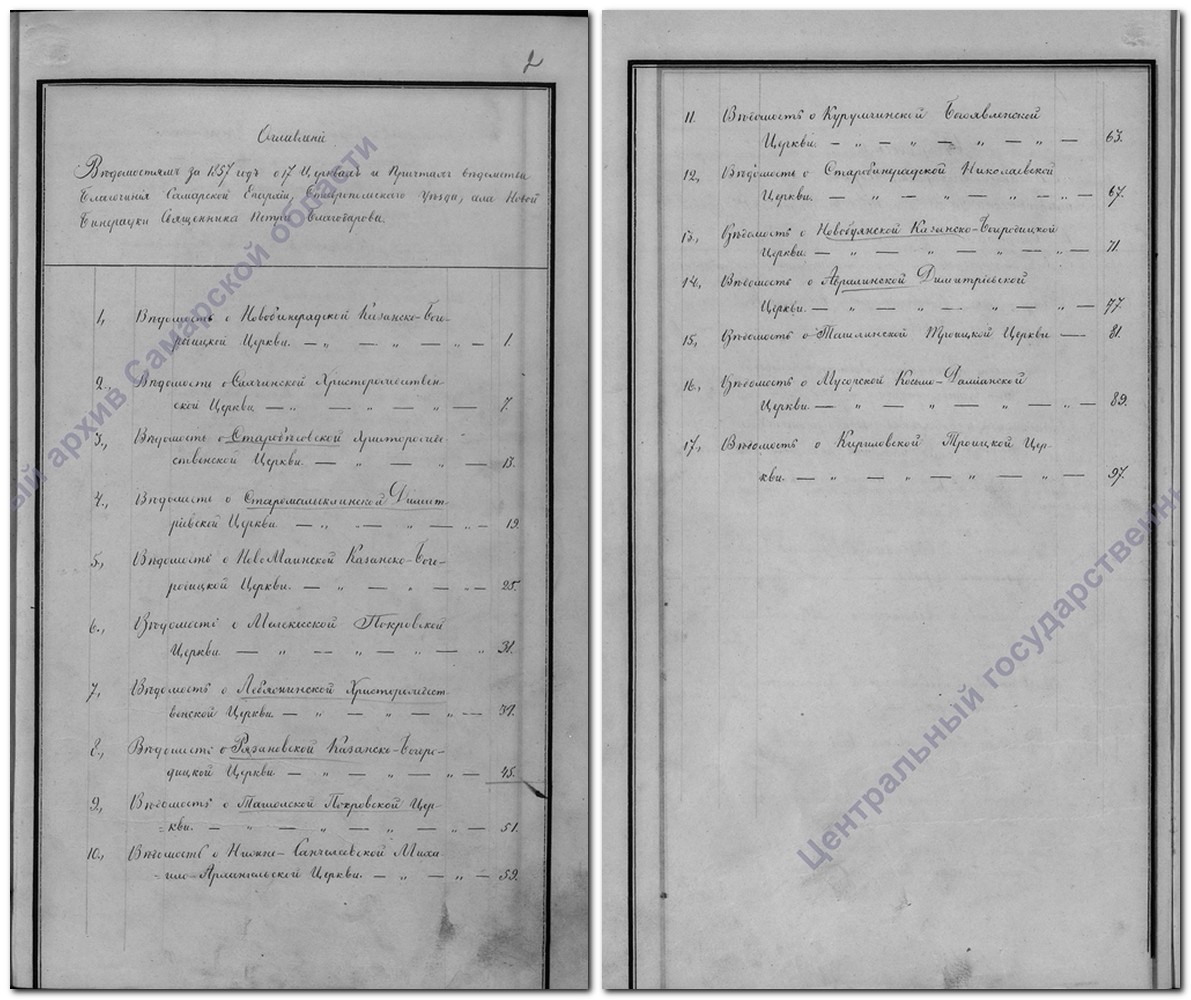 2
Оглавленіе
Вѣдомостямъ за 1857 годъ о 17 Церквахъ и Причтахъ вѣдомства
Благочинія Самарской Епархіи, Ставропольскаго Уѣзда, села Новой
Бинерадки Священника Петра Благодарова.
1., Вѣдомость о Новобинерадской Казанско-Бого-
родицкой Церкви. — „ — „ — „ — 1.
2., Вѣдомость о Салчинской Христорождествен-
ской Церкви — „ — „ — „ — 7.
3., Вѣдомость о Старобѣсовской Христорожде-
ственской Церкви. — „ — „ — 13.
4., Вѣдомость о Старомалыклинской Димит-
ріевской Церкви. — „ — „ — „ — 19.
5., Вѣдомость о НовоМаинской Казанско-Бого-
родицкой Церкви. — „ — „ — 25.
6., Вѣдомость о Мелекесской Покровской
Церкви. — „ — „ — „ — „ 31.
7., Вѣдомость о Лебяжинской Христорождест-
венской Церкви. — „ — „ — „ —
8., Вѣдомость о Рязановской Казанско-Богоро-
дицкой Церкви — „ — „ — „ — 45.
9., Вѣдомость о Ташолской Покровской Цер-
=кви. — „ — „ — „ — „ — 51.
10., Вѣдомость о Нижне-Санчелеевской Миха-
=ило-Архангельской Церкви. — „ — „ — 59.
11. Вѣдомость о Курумчинской Богоявленской
Церкви. — „ — „ — „ — 63.
12., Вѣдомость о Старобинерадской Николаевской
Церкви. — „ — „ — „ — „ — 67.
13., Вѣдомость о Новобуянской Казанско-Богородицкой
Церкви. — „ — „ — „ — „ — 71.
14., Вѣдомость о Авралинской Димитріевской
Церкви. — „ — „ — „ — „ — 77.
15., Вѣдомость о Ташлинской Троицкой Церкви — 81.
16., Вѣдомость о Мусорской Космо-Даміанской
Церкви. — „ — „ — „ — „ — 89.
17., Вѣдомость о Кириловской Троицкой Цер-
кви. — „ — „ — „ — „ — 97.
ый архив Самарской области
Центральный государственны